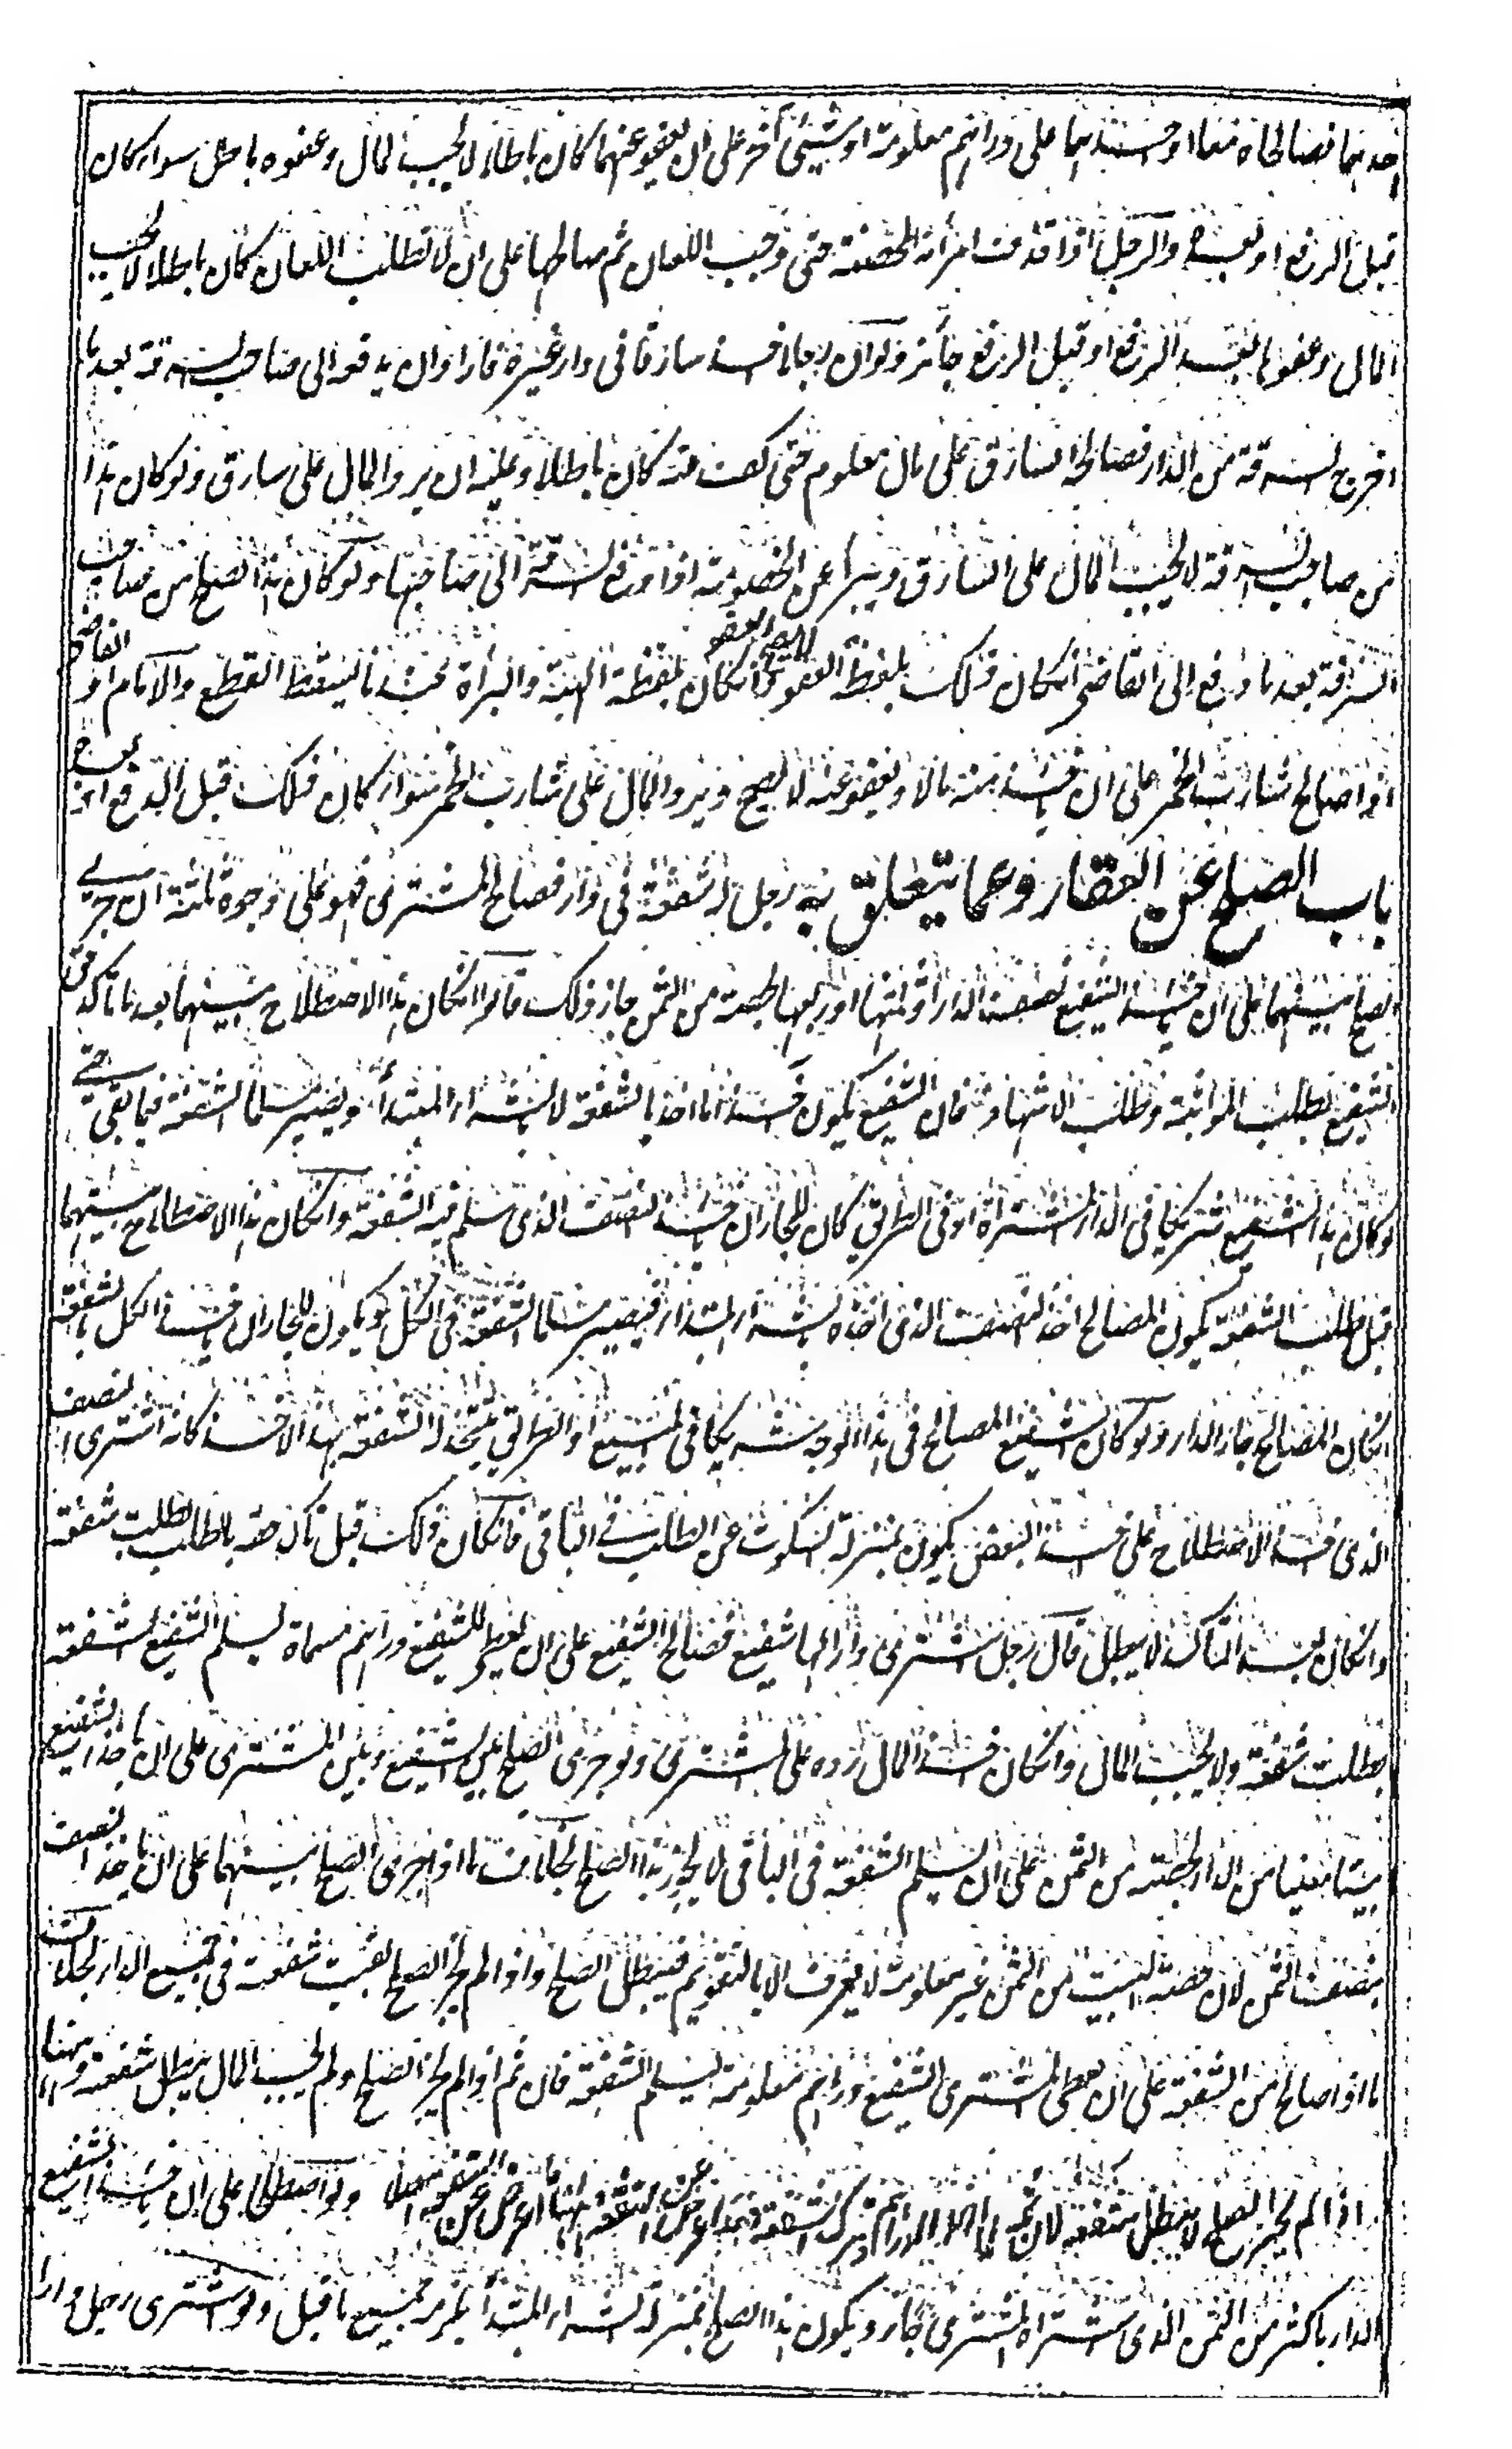 احدهما فصالحاه معا او احدهما على دراهم معلومة او شيئ آخر على ان يعفو عنهما كان باطلا لا يجب المال وعفوه باطل سواء كان
قبل الرفع او بعده والرجل اذا قذف امرأته المحصنة حتى وجب اللعان ثم صالحها على ان لا تطلب اللعان كان باطلا لا يجب
المال وعفوها بعد الرفع او قبل الرفع جائز ولو ان رجلا اخذ سارقا في دار غيره فاراد ان يدفعه الى صاحب السرقة بعد ما
اخرج السرقة من الدار فصالحه السارق على مال معلوم حتى كف عنه كان باطلا وعليه ان يرد المال على سارق ولو كان هذا
من صاحب السرقة لا يجب المال على السارق ويبرأ عن الخصومة اذا دفع السرقة الى صاحبها ولو كان هذا الصلح من صاحب
السرقة بعد ما رفع الى القاضي انكان ذلك بلفظة العفو لا يصح العفو وانكان بلفظة الهبة والبرأة عندنا يسقط القطع والامام او القاضي
اذا صالح شارب الخمر على ان ياخذ منه مالا ويعفو عنه لا يصح ويرد المال على شارب الخمر سواء كان ذلك قبل الدفع او بعده
باب الصلح عن العقار وعما يتعلق به رجل له شفعة في دار فصالح المشترى فهو على وجوه ثلثة ان جرى
الصلح بينهما على ان ياخذ الشفيع نصف الدار او ثلثها او ربعها بحصته من الثمن جاز ذلك فانكان هذا الاصطلاح بينهما بعد ما تأكد حق
الشفيع بطلب المواثبة وطلب الاشهاد فان الشفيع يكون آخذا ما اخذ بالشفعة لا بشراء المبتدأ ويصير مسلما الشفعة فيما بقي حتى
لو كان هذا الشفيع شريكا في الدار المشتراة او في الطريق كان للجار ان ياخذ النصف الذى سلم فيه الشفعة وانكان هذا الاصطلاح بينهما
قبل طلب الشفعة يكون المصالح اخذ النصف الذى اخذه بشراء المبتدأ فيصير مسلما الشفعة في الكل ويكون للجار ان ياخذ الكل بالشفعة
انكان المصالح جار الدار ولو كان الشفيع المصالح في هذا الوجه شريكا في المبيع او الطريق يتجدد له الشفعة بهذا الاخذ كانه اشترى النصف
الذى اخذ الاصطلاح على اخذ البعض يكون بمنزلة السكوت عن الطلب في الباقي فانكان ذلك قبل تأكد حقه بالطلب بطلت شفعته
وانكان بعد التأكد لا يبطل قال رجل اشترى دارا لها شفيع فصالح الشفيع على ان يعطى للشفيع دراهم مسماة ليسلم الشفيع الشفعة
بطلت شفعته ولا يجب المال وانكان اخذ المال رده على المشترى ولو جرى الصلح بين الشفيع وبين المشترى على ان ياخذ الشفيع
بيتا معينا من الدار بحصته من الثمن على ان يسلم الشفعة في الباقي لا يجوز هذا الصلح بخلاف ما اذا جرى الصلح بينهما على ان ياخذ النصف
بنصف الثمن لان حصة البيت من الثمن غير معلومة لا يعرف الا بالتقويم فيبطل الصلح واذا لم يجز الصلح بقيت شفعته في جميع الدار بخلاف
ما اذا صالح من الشفعة على ان يعطى المشترى الشفيع دراهم معلومة ليسلم الشفعة فان ثم اذا لم يجز الصلح ولم يجب المال يبطل شفعته وههنا
اذا لم يجز الصلح لا يبطل شفعته لان ثمه لما اخذ الدراهم بترك الشفعة فقد اعرض عن الشفعة اما ههنا ما اعرض عن الشفعة اصلا ولو اصطلحا على ان ياخذ الشفيع
الدار باكثر من الثمن الذى اشتراه المشترى جاز ويكون هذا الصلح بمنزلة الشراء المبتدأ يلزم جميع ما قبل ولو اشترى رجل دارا